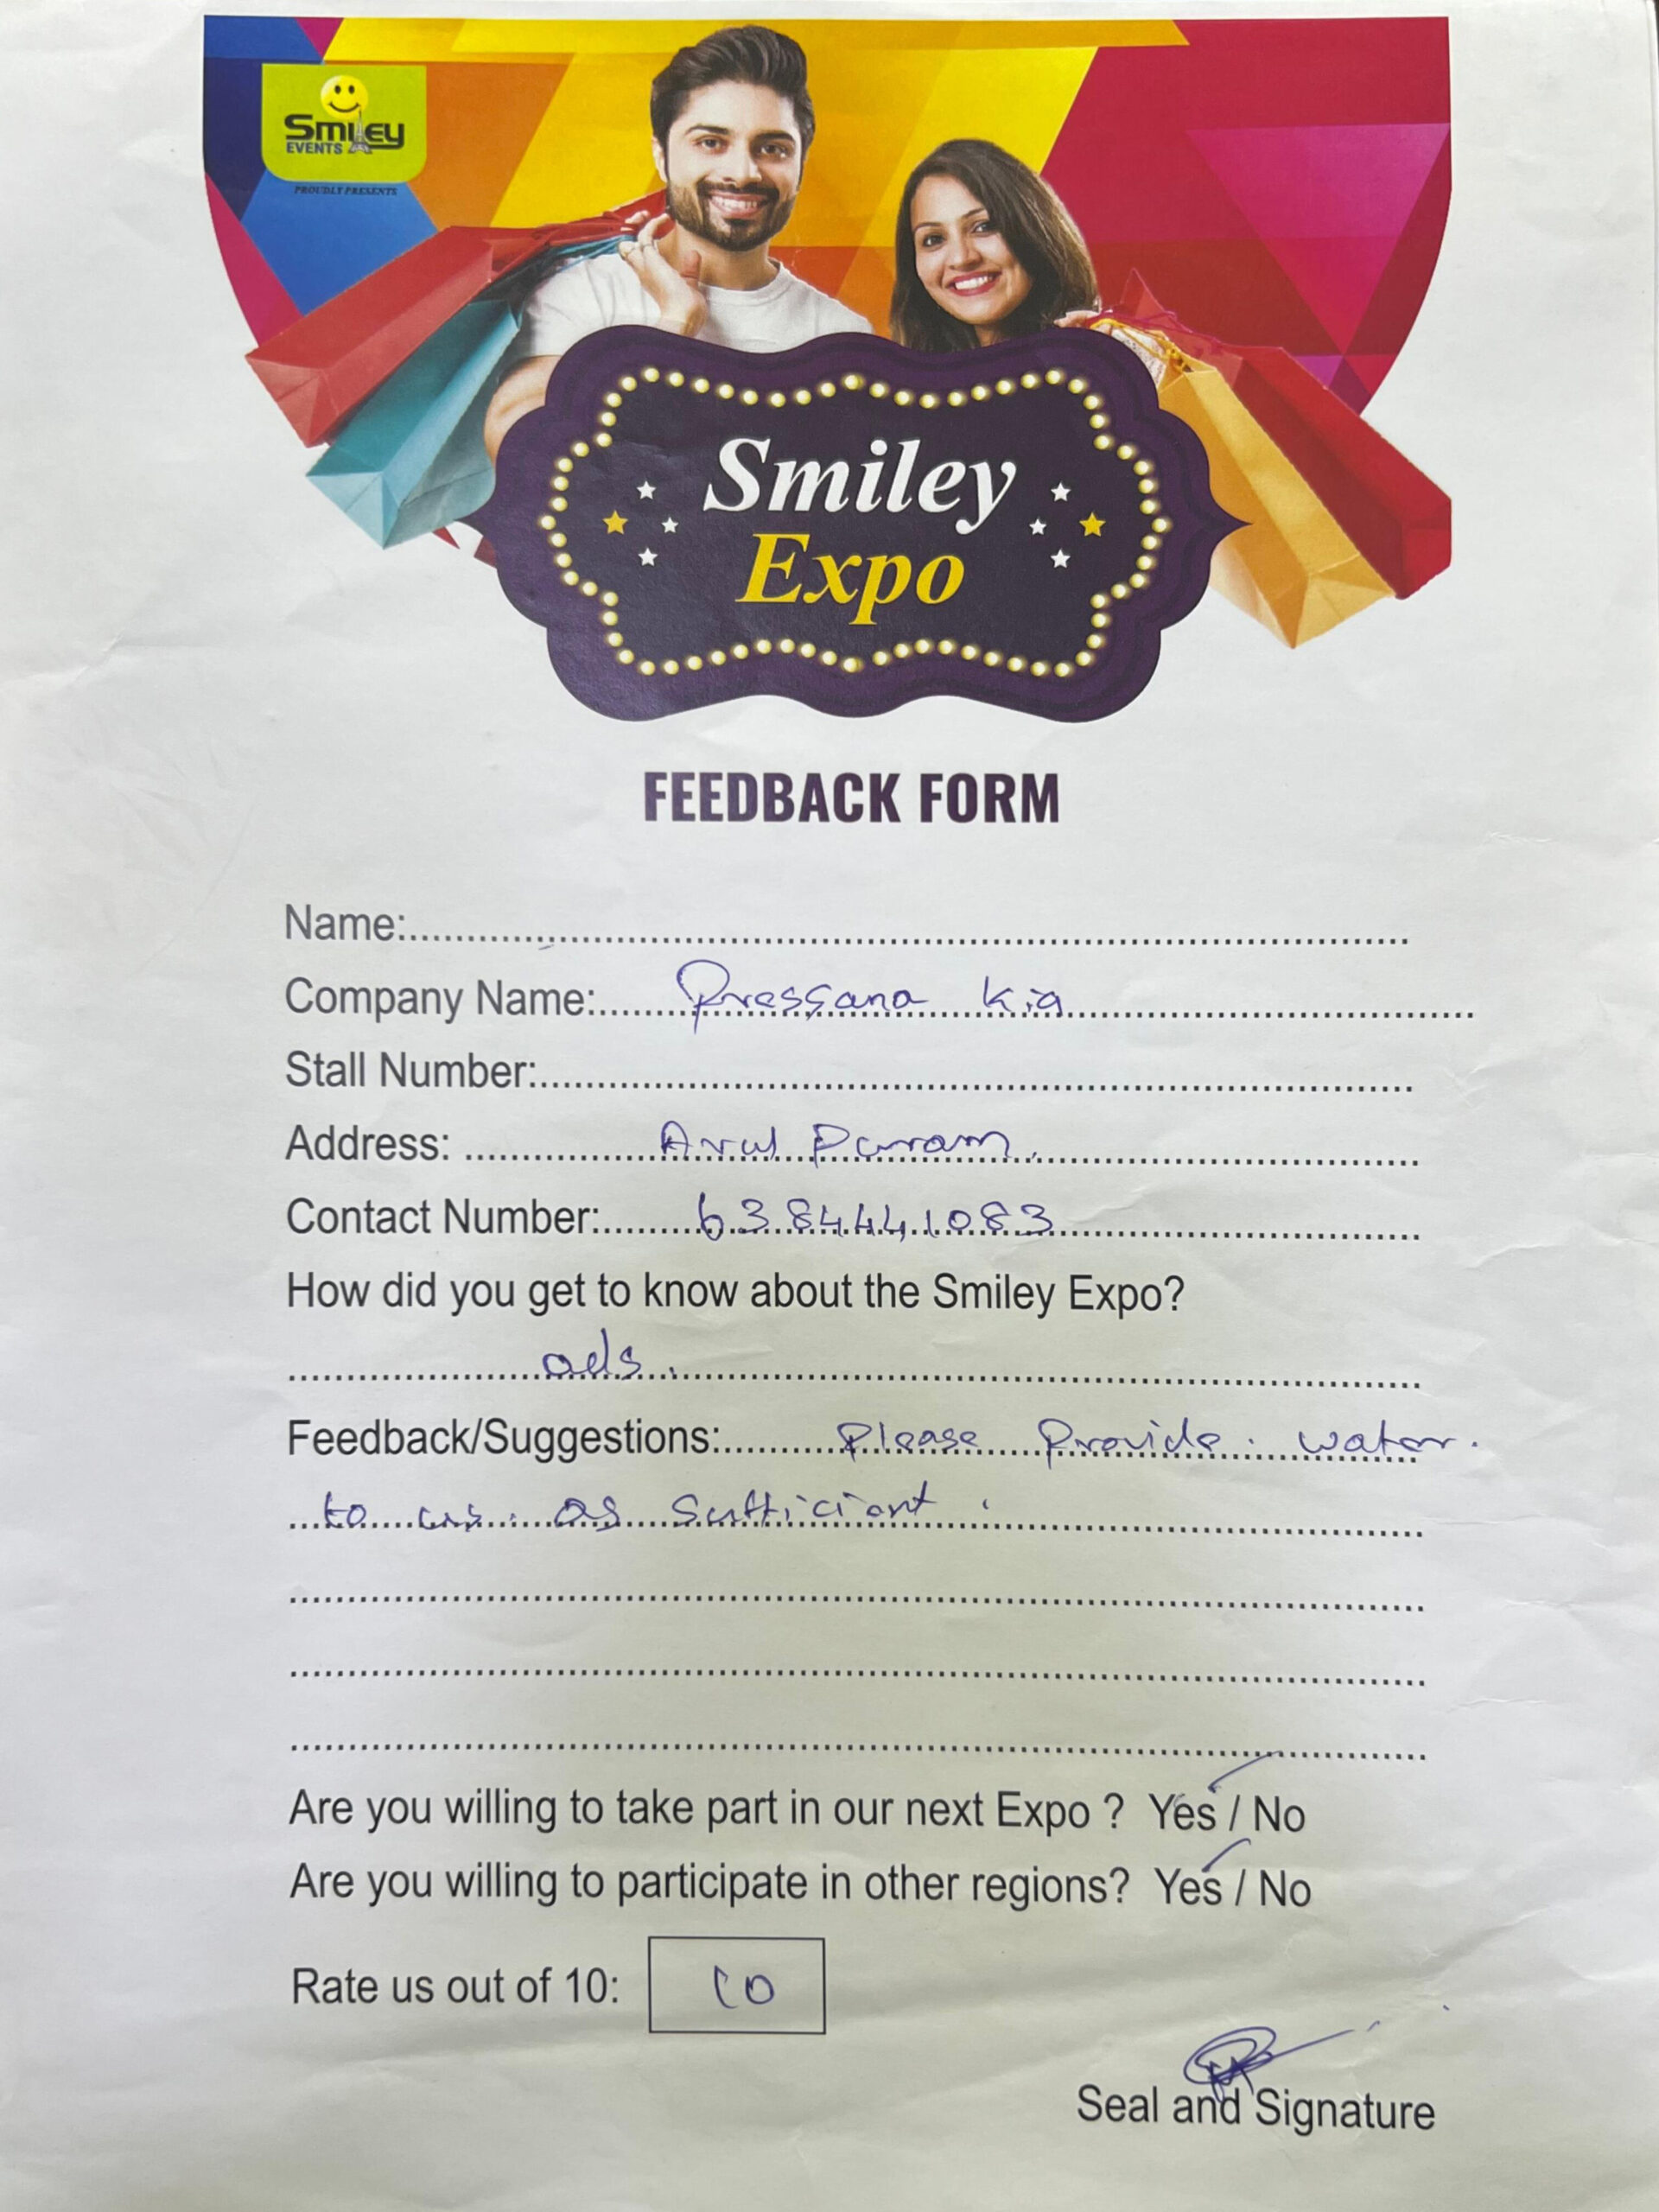 Smiley
EVENTS
PROUDLY PRESENTS
Smiley
Expo
FEEDBACK FORM
Name:
Company Name: Pressana Kia
Stall Number:
Address: Arul Puram.
Contact Number: 6384441083
How did you get to know about the Smiley Expo?
ads.
Feedback/Suggestions: Please Provide. water.
to us. as Sufficient.
Are you willing to take part in our next Expo ? Yes / No
Are you willing to participate in other regions? Yes / No
Rate us out of 10: 10
Seal and Signature